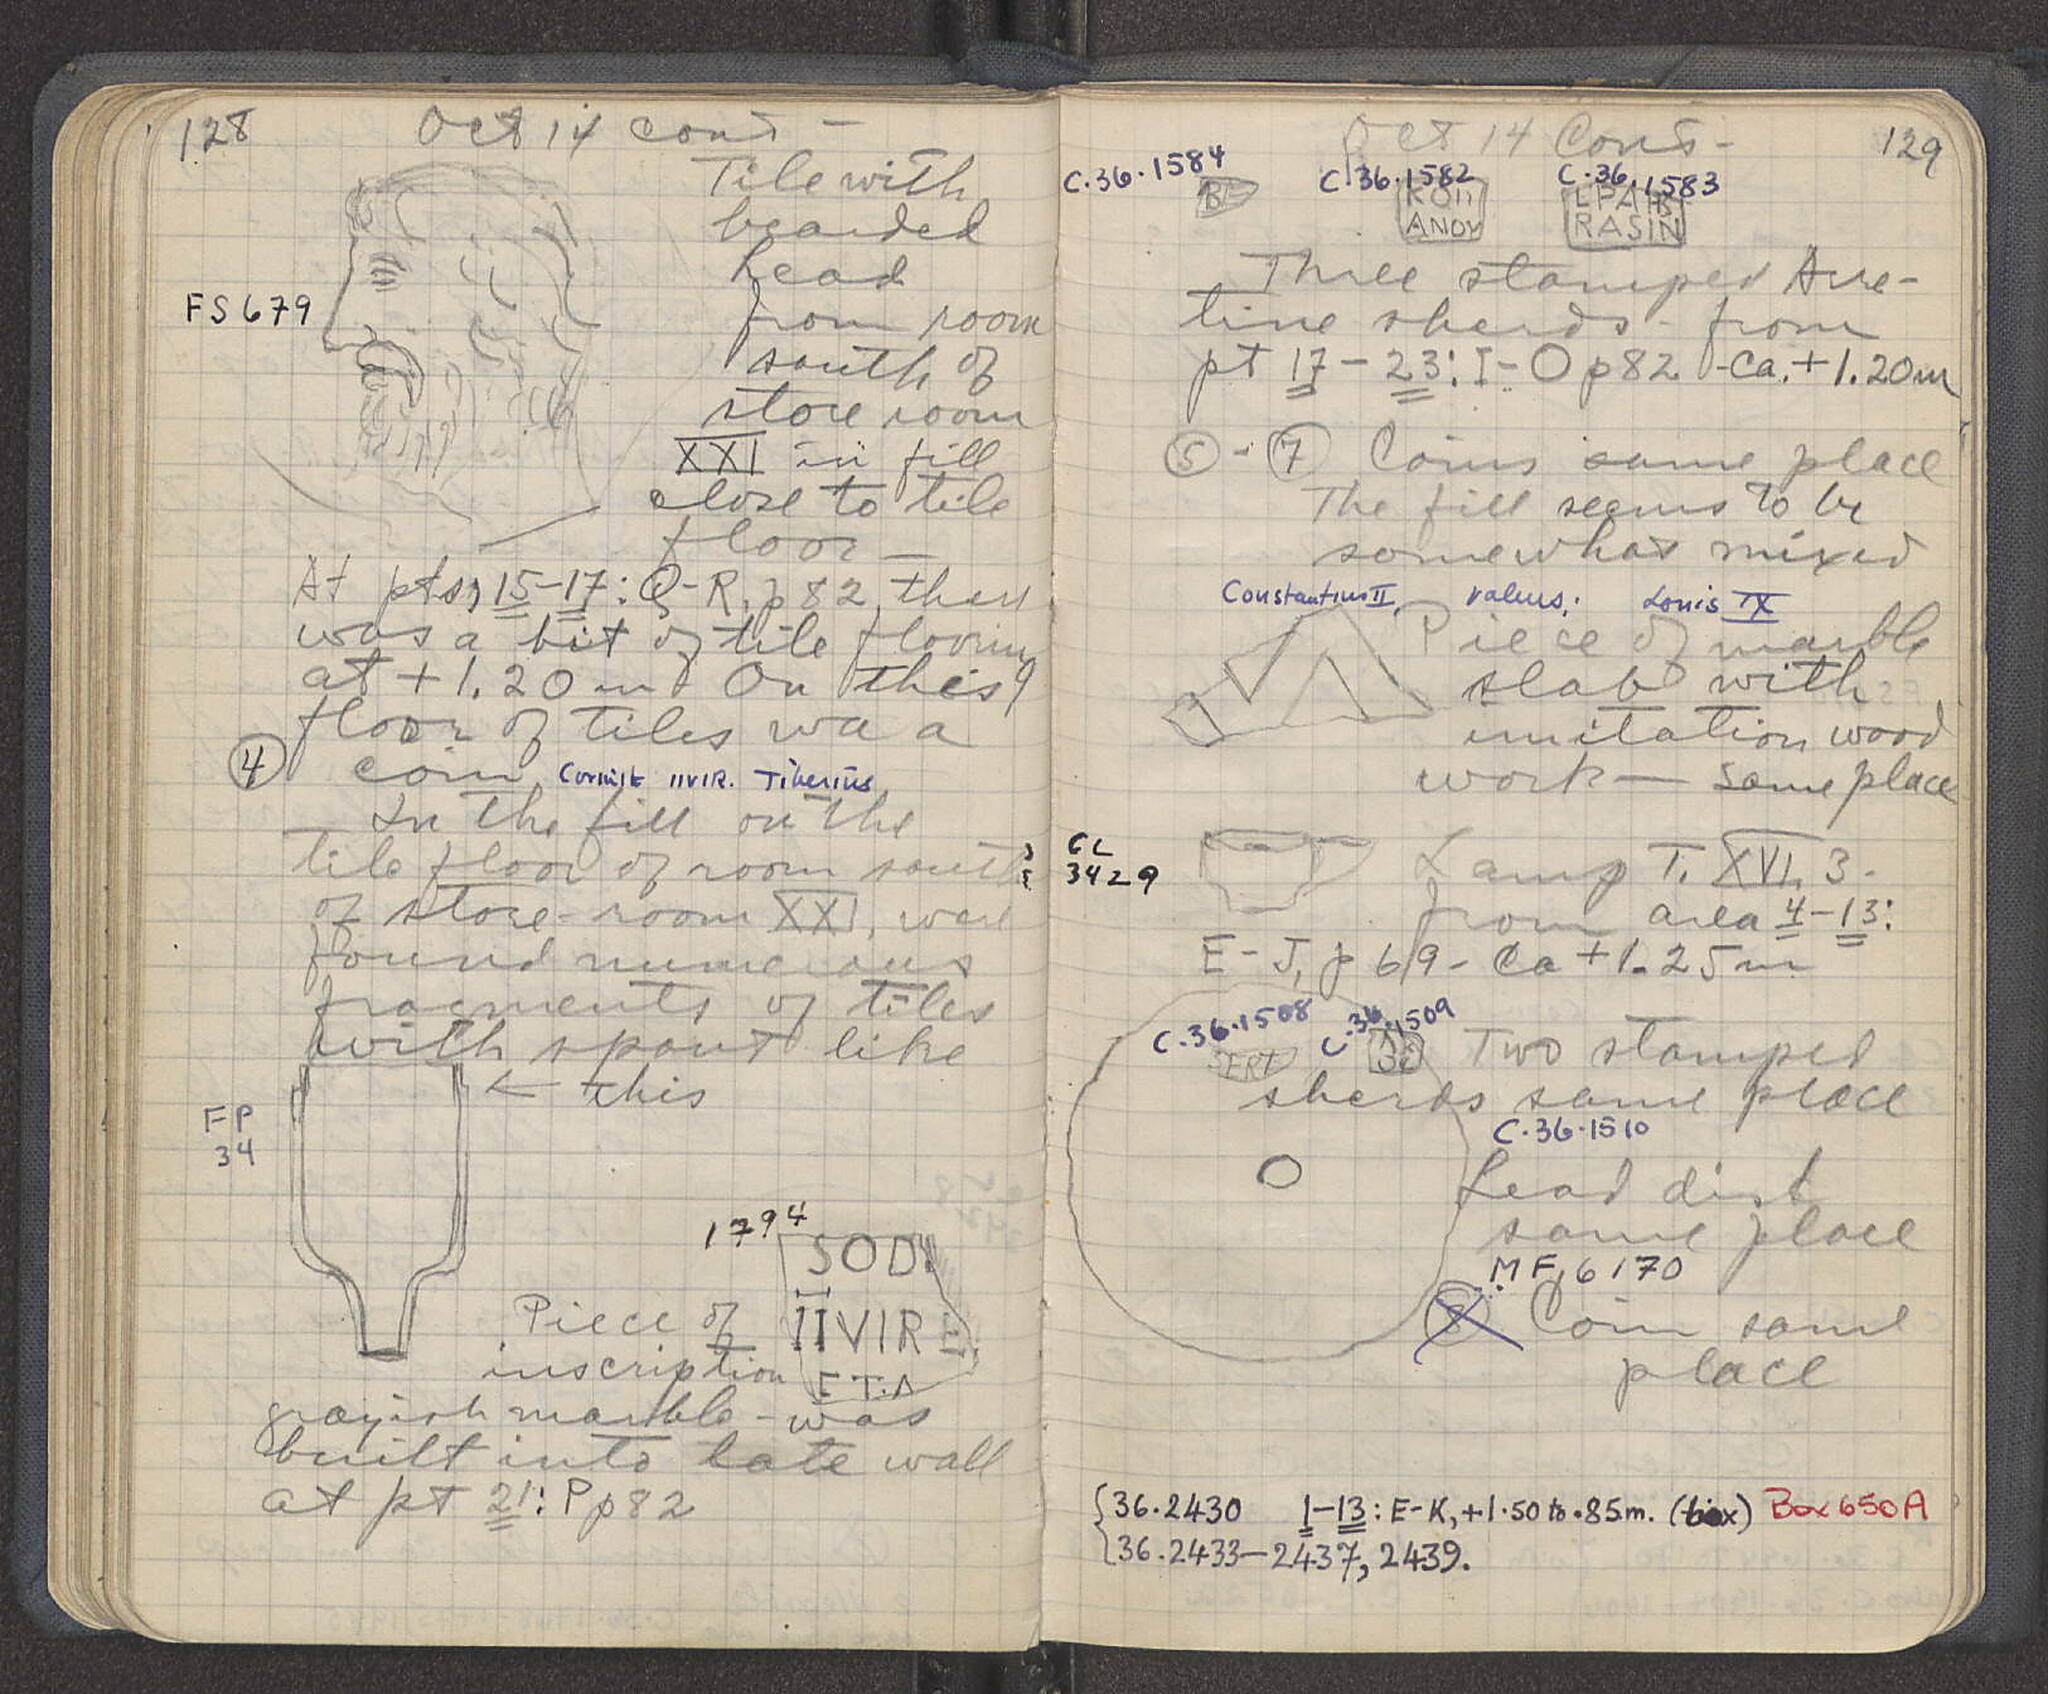 128
Oct 14 cont -
Tile with
bearded
head
FS 679
from room
south of
store room
XXI in fill
close to tile
floor —
At pts, 15-17: Q-R, p 82, there
was a bit of tile flooring
at + 1.20 m. On this
floor of tiles wa a
④ coin Corinth IIVIR. Tiberius
In the fill on the
tile floor of room south
of store-room XXI, were
found numerous
fragments of tiles
with spout like
← this
FP
34
1794
SOD
IIVIRE
ET.A
Piece of
inscription
grayish marble - was
built into late wall
at pt 21: P p 82
129
Oct 14 Cont -
C.36.1584 C.36.1582 C.36.1583
KOII
ANOY
LPAHS
RASIN
Three stamped Arre-
tine sherds - from
pt 17-23: I-O p 82 - Ca. + 1.20 m
⑤ - ⑦ Coins same place
The fill seems to be
somewhat mixed
Constantius II, Valens; Louis IX
Piece of marble
slab with
imitation wood
work — same place
CL
3429
Lamp T. XVI, 3 -
from area 4-13:
E-J, p 69 - Ca + 1.25 m
C.36.1508 C.36.1509
SERT
Two stamped
sherds same place
C.36.1510
Lead disk
same place
MF, 6170
⑧ Coin same
place
36.2430 1-13: E-K, +1.50 to .85 m. (box) Box 650A
36.2433-2437, 2439.